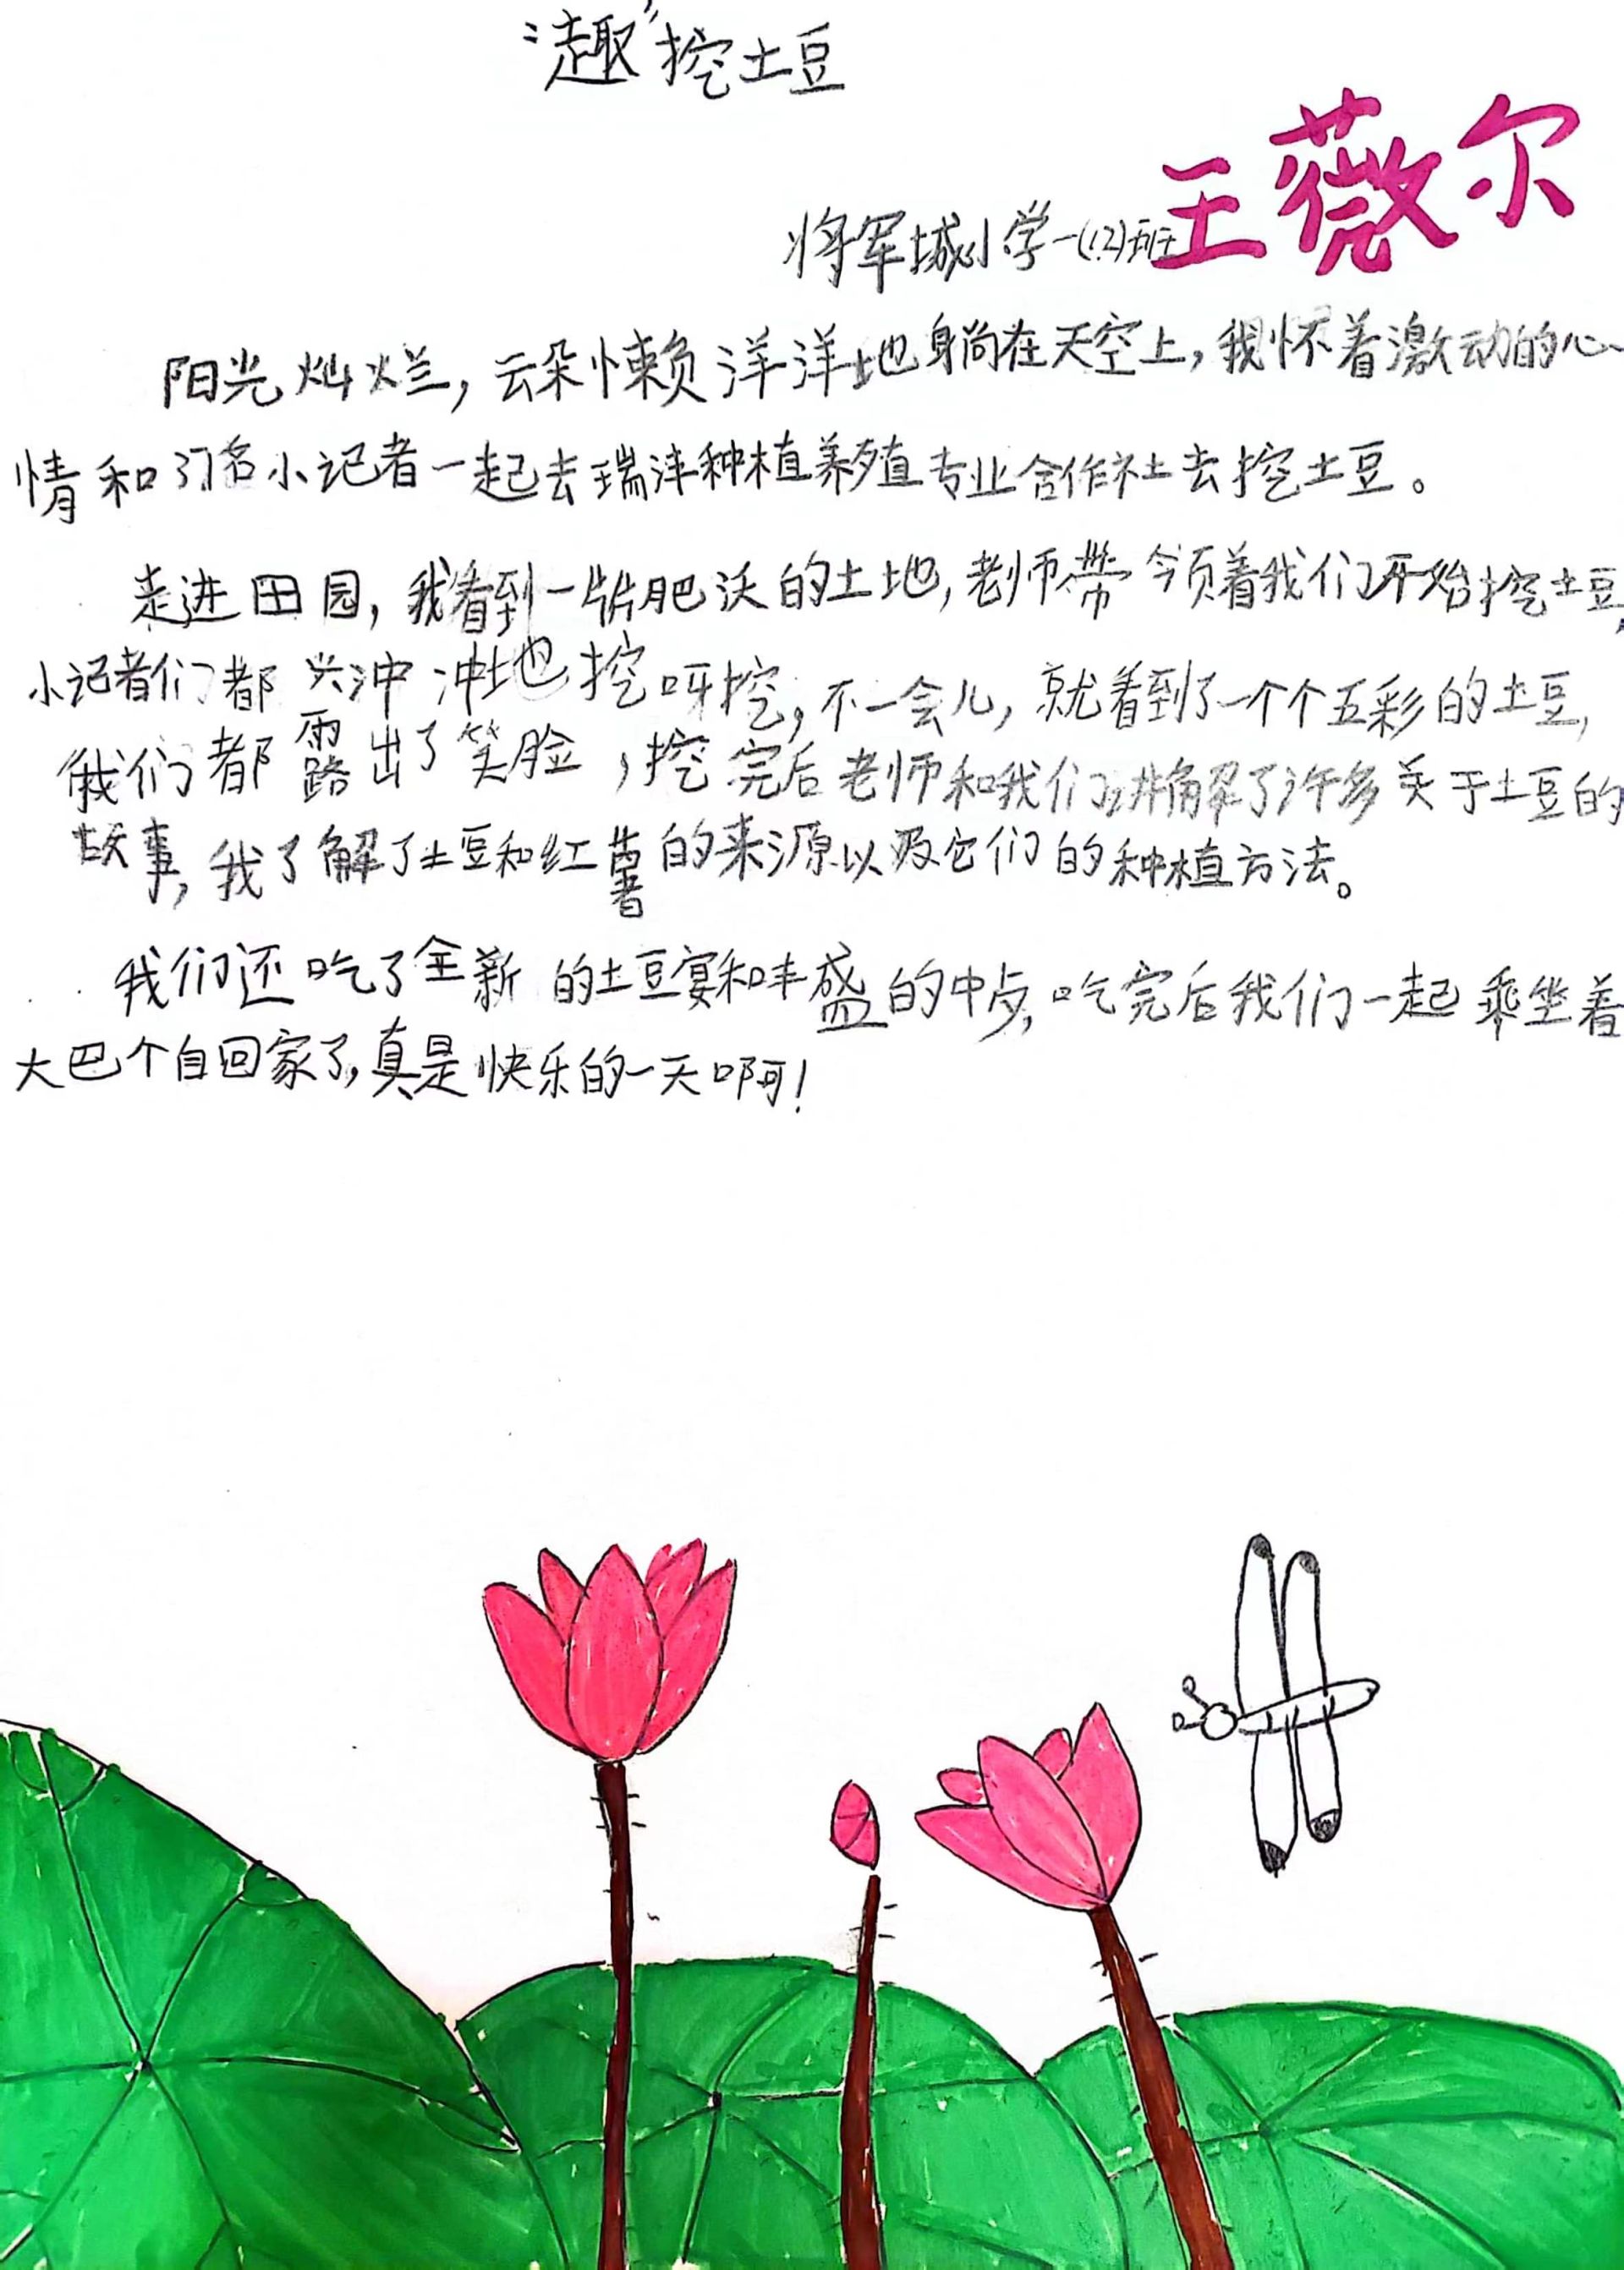 “趣”挖土豆
王薇尔
将军城小学一(12)班
阳光灿烂，云朵懒洋洋地躺在天空上，我怀着激动的心
情和37名小记者一起去瑞沣种植养殖专业合作社去挖土豆。
走进田园，我看到一片肥沃的土地，老师带领着我们开始挖土豆，
小记者们都兴冲冲地挖呀挖，不一会儿，就看到了一个个五彩的土豆，
我们都露出了笑脸，挖完后老师和我们讲解了许多关于土豆的
故事，我了解了土豆和红薯的来源以及它们的种植方法。
我们还吃了全新的土豆宴和丰盛的中点，吃完后我们一起乘坐着
大巴个自回家了，真是快乐的一天啊！